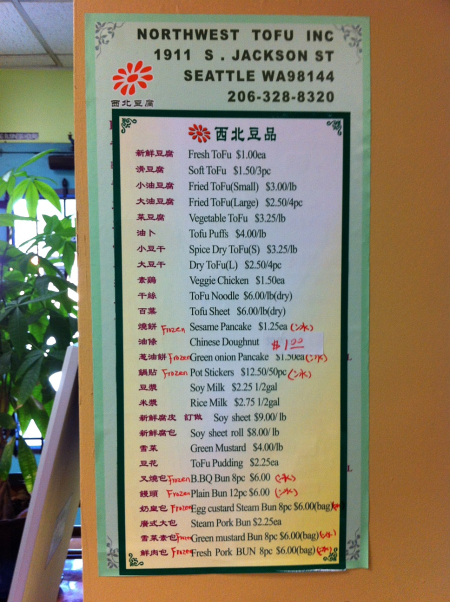 NORTHWEST TOFU INC
1911 S. JACKSON ST
SEATTLE WA98144
206-328-8320
西北豆腐
西北豆品
新鮮豆腐 Fresh ToFu $1.00ea
滑豆腐 Soft ToFu $1.50/3pc
小油豆腐 Fried ToFu(Small) $3.00/lb
大油豆腐 Fried ToFu(Large) $2.50/4pc
菜豆腐 Vegetable ToFu $3.25/lb
油卜 Tofu Puffs $4.00/lb
小豆干 Spice Dry ToFu(S) $3.25/lb
大豆干 Dry ToFu(L) $2.50/4pc
素鷄 Veggie Chicken $1.50ea
干絲 ToFu Noodle $6.00/lb(dry)
百葉 Tofu Sheet $6.00/lb(dry)
燒餅 Frozen Sesame Pancake $1.25ea (冫水)
油條 Chinese Doughnut $1.00
葱油餅 Frozen Green onion Pancake $1.50ea (冫水)
鍋貼 Frozen Pot Stickers $12.50/50pc (冫水)
豆漿 Soy Milk $2.25 1/2gal
米漿 Rice Milk $2.75 1/2gal
新鮮腐皮 訂做 Soy sheet $9.00/ lb
新鮮腐包 Soy sheet roll $8.00/ lb
雪菜 Green Mustard $4.00/lb
豆花 ToFu Pudding $2.25ea
叉燒包 Frozen B.BQ Bun 8pc $6.00 (冫水)
饅頭 Frozen Plain Bun 12pc $6.00 (冫水)
奶皇包 Frozen Egg custard Steam Bun 8pc $6.00(bag)
廣式大包 Steam Pork Bun $2.25ea
雪菜素包 Frozen Green mustard Bun 8pc $6.00(bag) (冫水)
鮮肉包 Frozen Fresh Pork BUN 8pc $6.00(bag) (冫水)